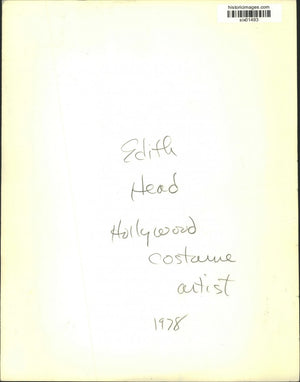 historicimages.com
Edith
Head
Hollywood
costume
artist
1978